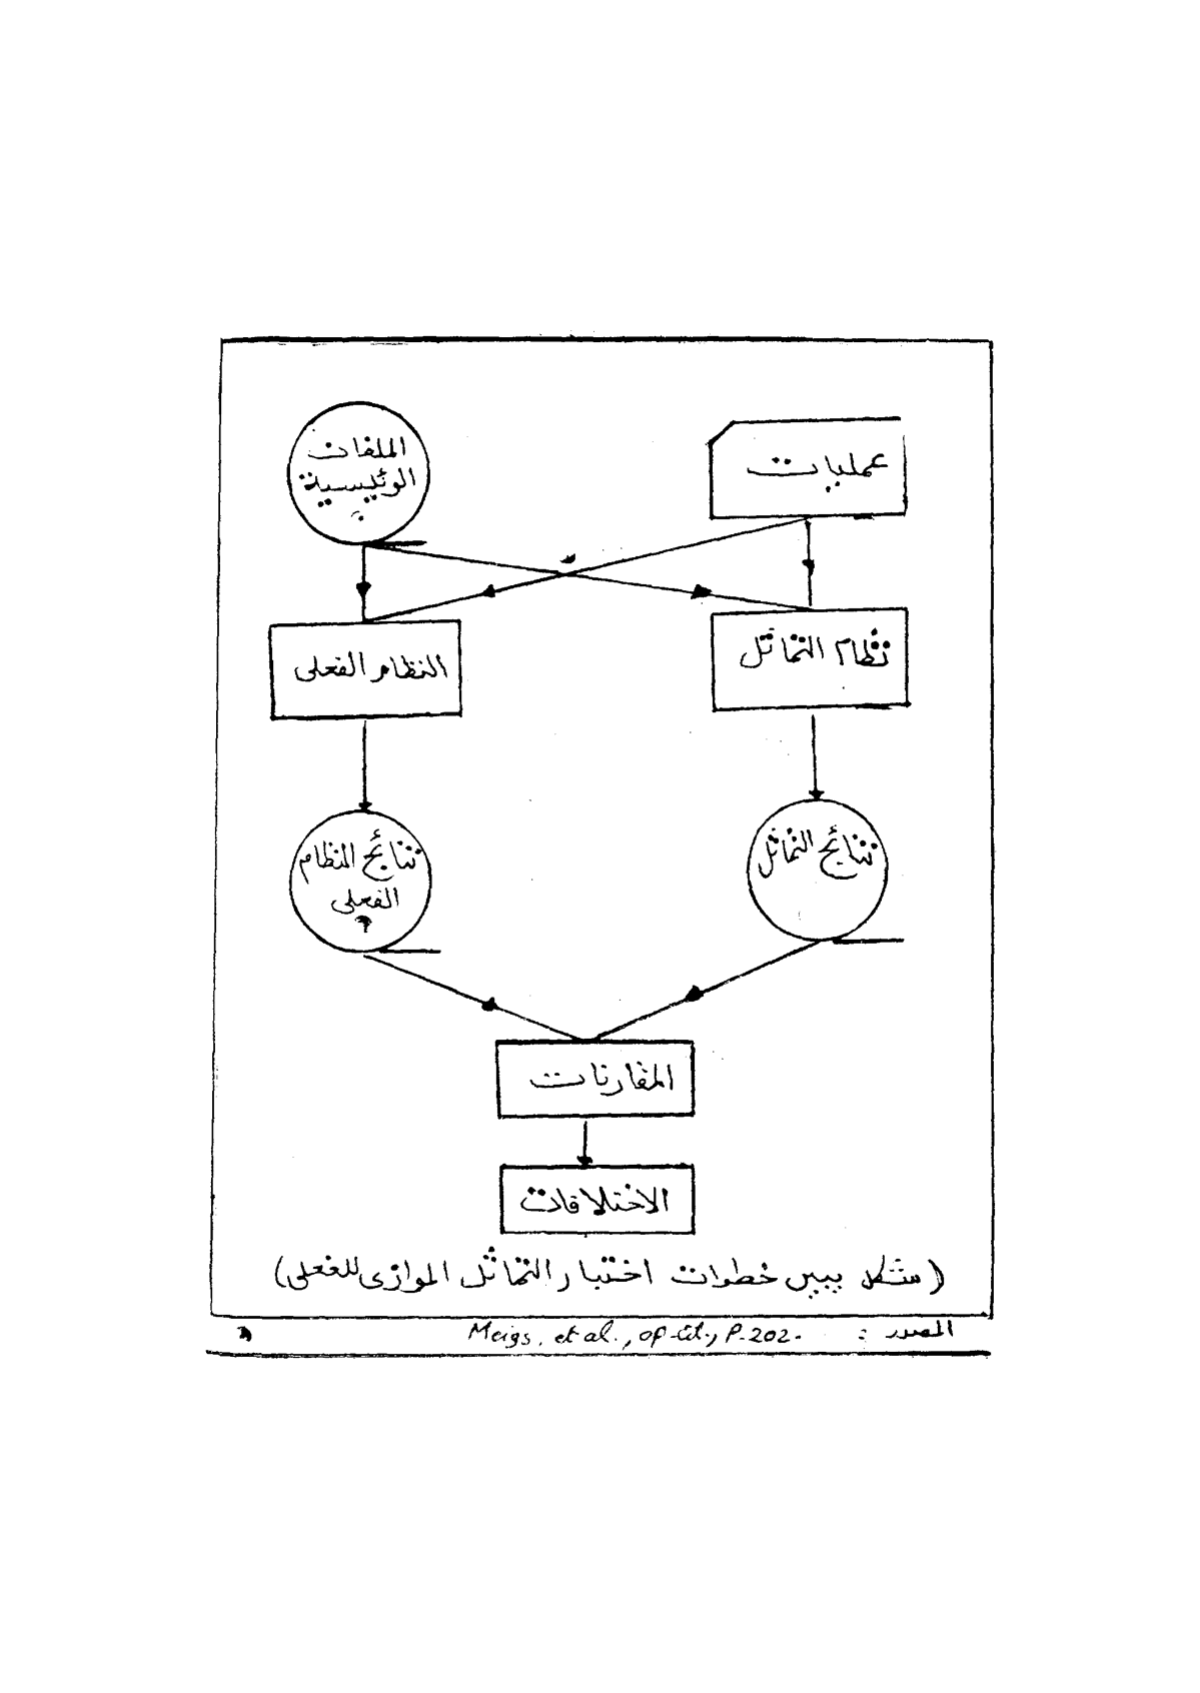 عمليات
الملفات
الرئيسية
نظام التماثل
النظام الفعلى
نتائج التماثل
نتائج النظام
الفعلى
المقارنات
الاختلافات
(شكل يبين خطوات اختبار التماثل الموازى للفعلى)
المصدر : Meigs, et al., op-cit, P.202.